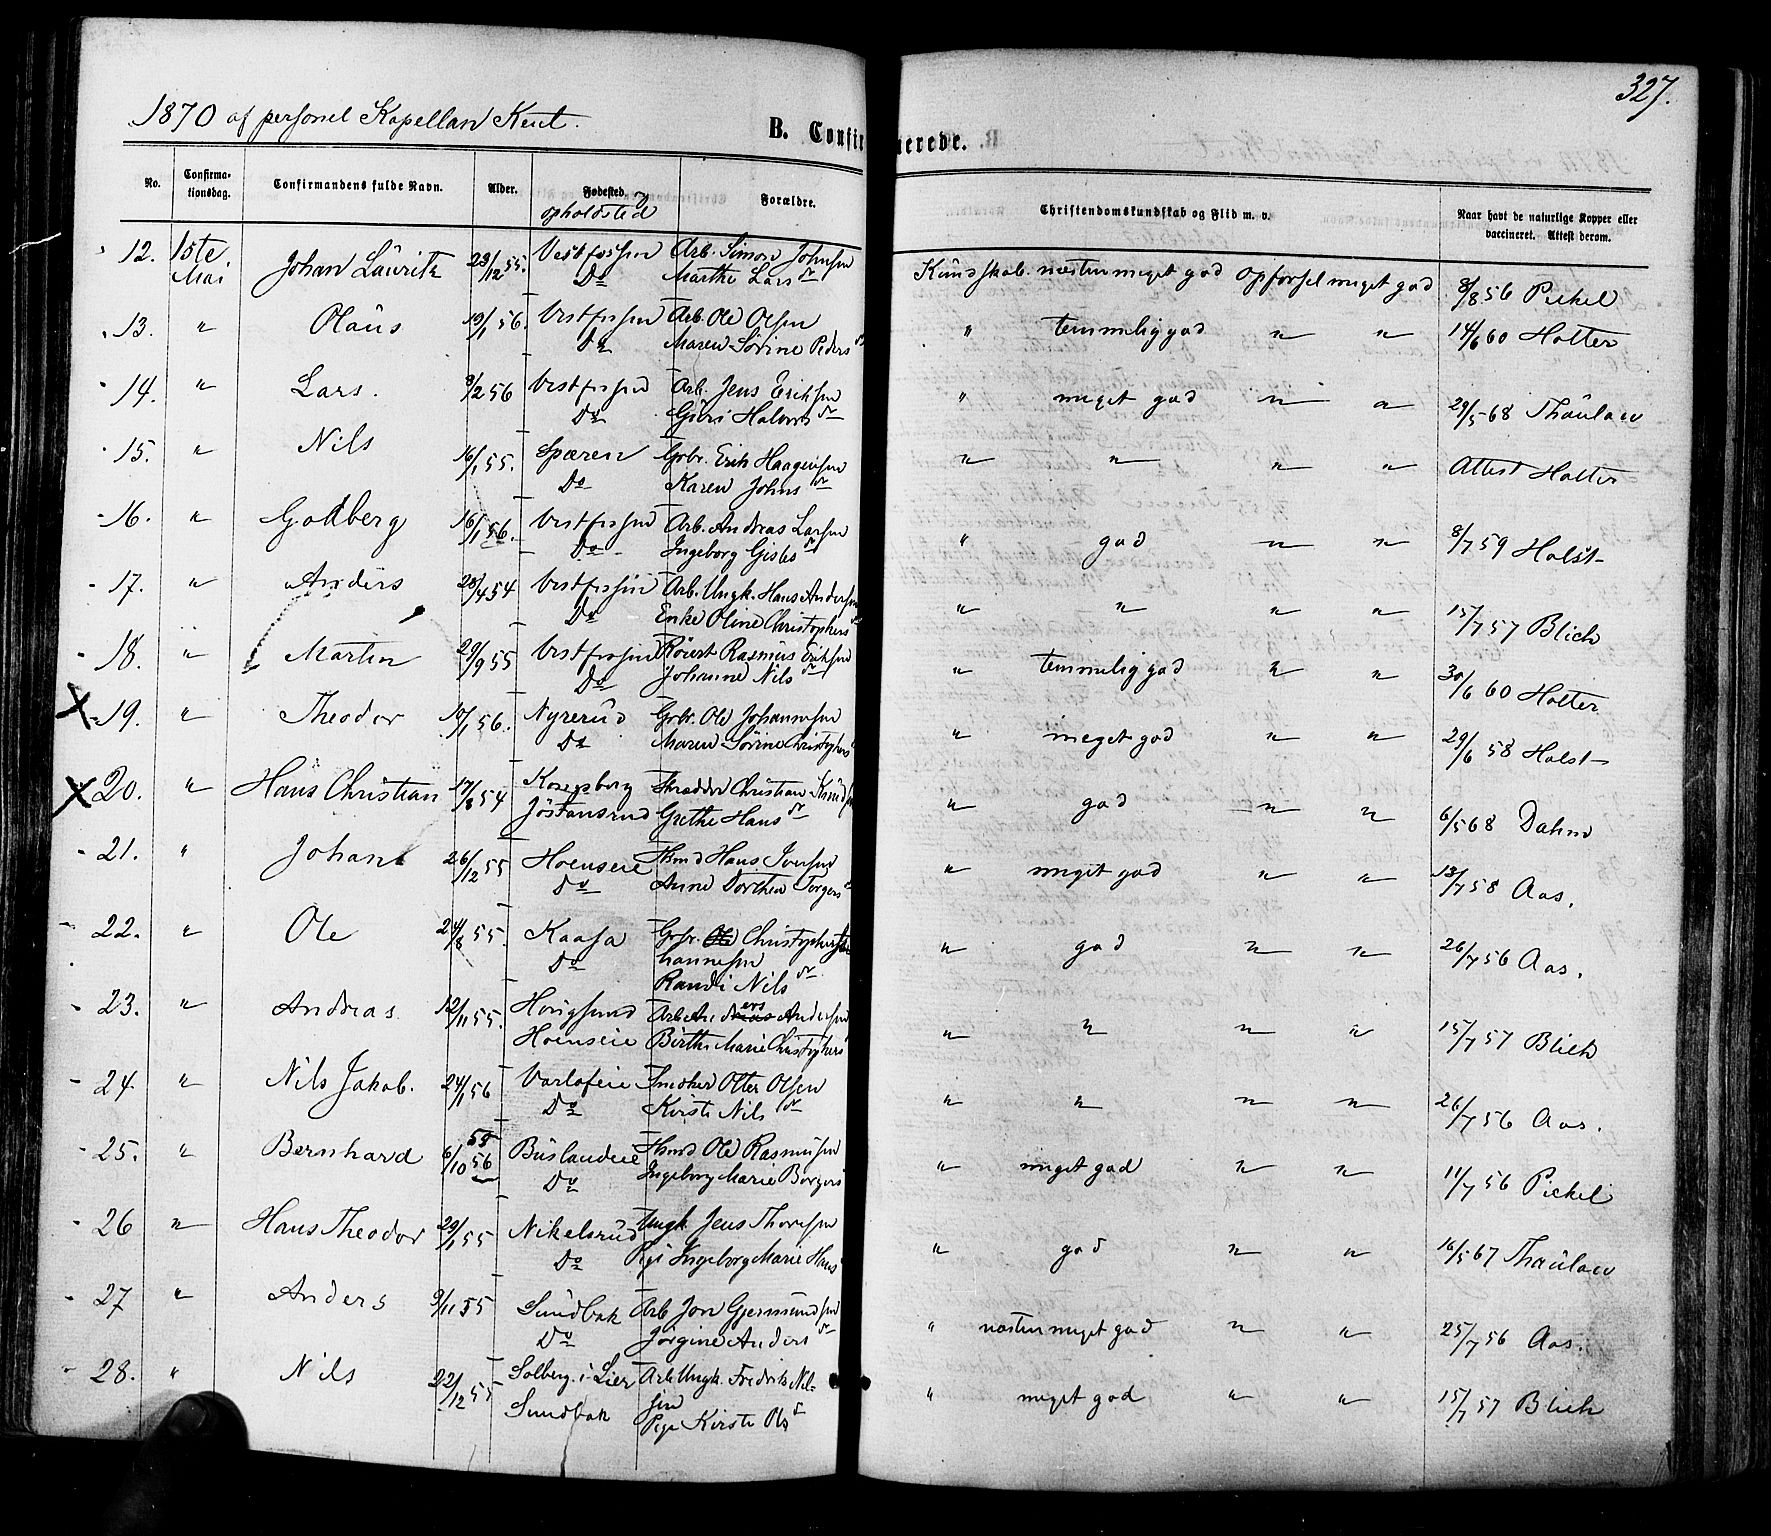 327.
1870 af personel Kapellan Keut.
B. Confirmerede.
No. Confirma-tionsdag. Confirmandens fulde Navn. Alder. Fødested og opholdsted Forældre. Christendomskundskab og Flid m. v. Naar havt de naturlige Kopper eller vaccineret. Attest derom.
12. 1ste Mai Johan Lauritz 23/12 55. Vestfossen Arb. Simon Johnsen Kundskab næsten meget god opførsel meget god 8/8 56 Pickel
Do Marthe Larsdr
13. " Olaus 19/1 56. Vestfossen Arb. Ole Olsen " temmelig god " " 14/6 60 Holter
Do Maren Sørine Pedersdr
14. " Lars. 8/2 56 Vestfossen Arb. Jens Eriksen " meget god " " 29/5 68 Thaulow
Do Guri Halvorsdr
15. " Nils 16/1 55. Spæren Grbr. Erik Haagensen " " " " Attest Holter
Do Karen Johnsdr
16. " Godberg 16/1 56. Vestfossen Arb. Andreas Larsen " god " " 8/7 59 Holst
Do Ingeborg Gislesdr
17. " Anders 28/4 54 Vestfossen Arb. Ungk. Hans Andersen " " " " 15/7 57 Blich
Do Enke Oline Christophersdr
18. " Martin 29/9 55 Vestfossen Rasmus Eriksen " temmelig god " " 30/6 60 Holter
Do Johanne Nilsdr
19. " Theodor 10/1 56. Nyrerud Grbr. Ole Johannesen " meget god " " 29/6 58 Holst
Do Maren Sørine Christophersdr
20. " Hans Christian 17/8 54 Kongsberg Skrædder Christian Knudsen " god " " 6/5 68 Dahm
Jostansrud Grethe Hansdr
21. " Johan 26/12 55 Hoenseie Hmd Hans Iversen " meget god " " 13/7 58 Aas.
Do Anne Dorthea Torgersdr
22. " Ole 24/8 55. Kaasa Grbr. Christopher Johannesen " god " " 26/7 56 Aas.
Do Randi Nilsdr
23. " Andreas. 12/11 55. Hougsund Arb Anders Andersen " " " " 15/7 57 Blich
Hoenseie Birthe Marie Christophers
24. " Nils Jakob. 24/1 56 Varloseie Smeker Otter Olsen " " " " 26/7 56 Aas.
Do Kirsti Nilsdr
25. " Bernhard 6/10 55 56 Buslandeie Hmd Ole Rasmusen " meget god " " 11/7 56 Pickel
Do Ingeborg Marie Borgers
26 " Hans Theodor 29/1 55 Nikelsrud Ungk. Jens Thoresen " god " " 16/5 67 Thaulow
Do Pige Ingeborg Marie Hans
27 " Anders 9/11 55 Sundbak Arb Jon Gjermundsen " næsten meget god " " 25/7 56 Aas.
Do Jørgine Andersdr
28. " Nils 22/12 55 Solberg i Lier Arb Ungk. Fredrik Nilsen " meget god " " 15/7 57 Blich
Sundbak Pige Kirsti Olsdr